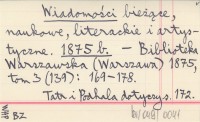 Wiadomości bieżące,
naukowe, literackie i artys-
tyczne. 1875 b. — Biblioteka
Warszawska (Warszawa) 1875,
tom 3 (139): 169-178.
Tatr i Podhala dotyczy s. 172.
BZ